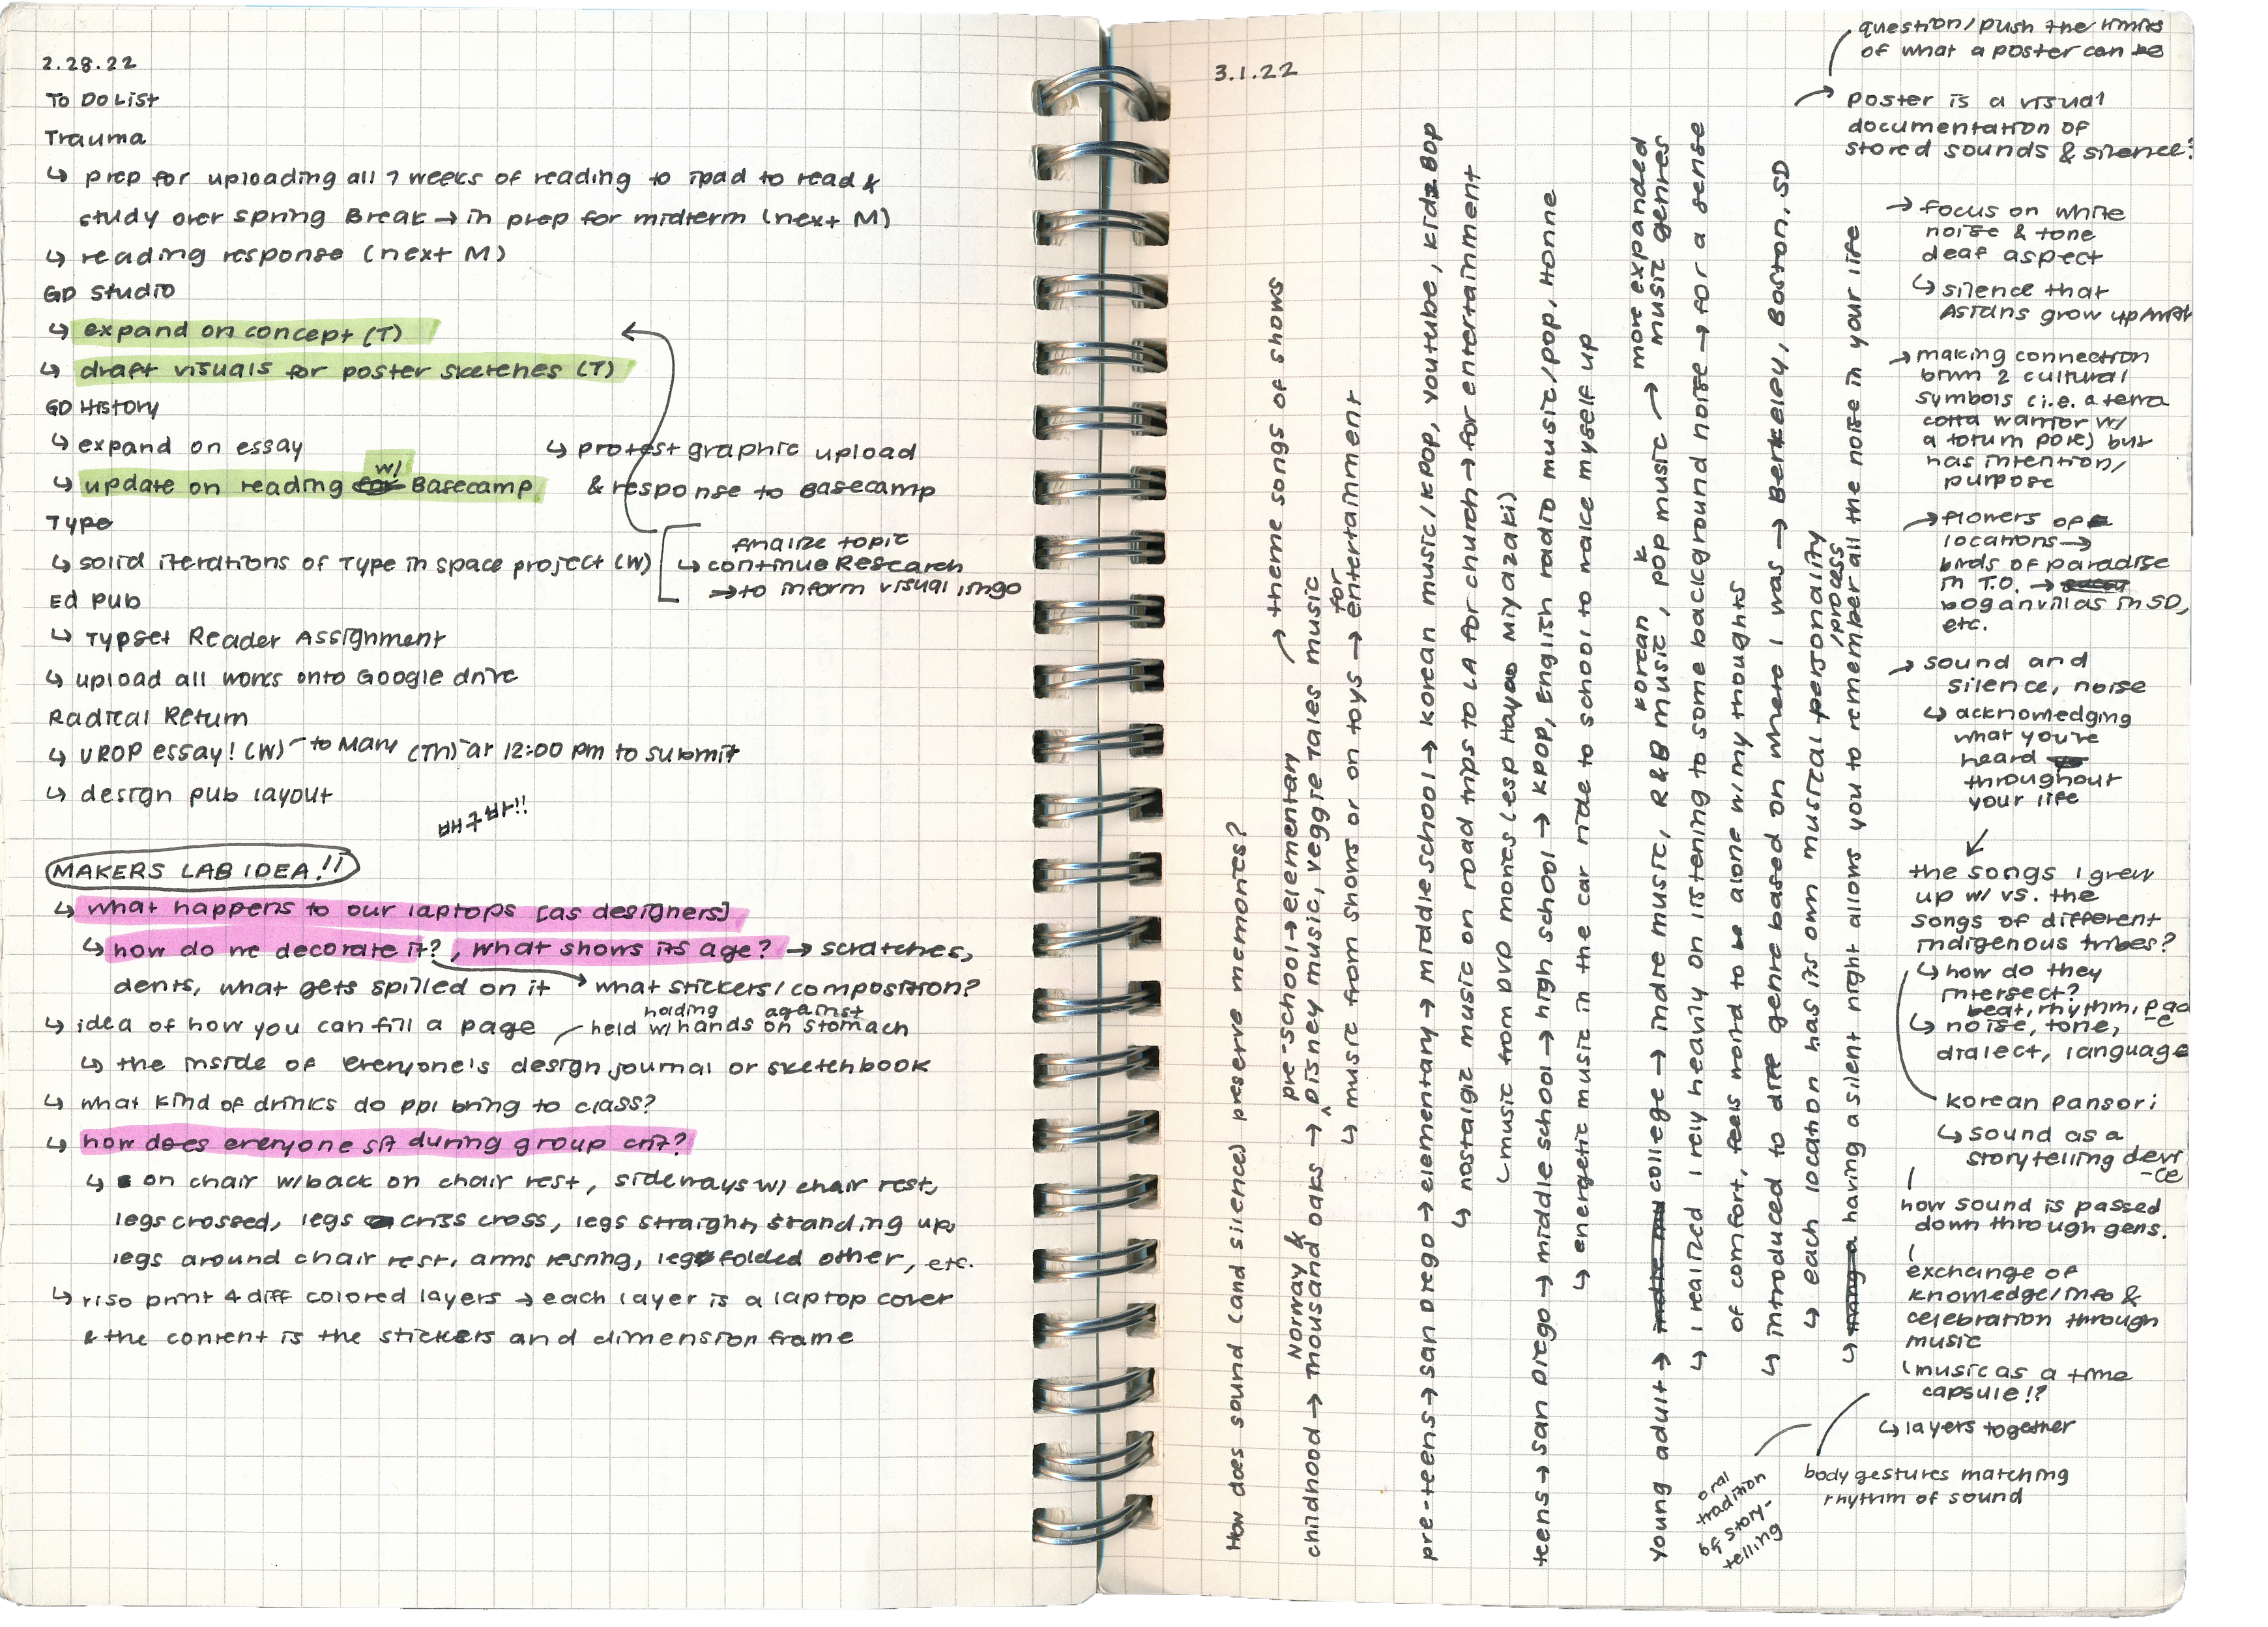 2.28.22
To Do List
Trauma
↳ prep for uploading all 7 weeks of reading to ipad to read &
study over spring Break → in prep for midterm (next M)
↳ reading response (next M)
GD Studio
↳ expand on concept (T)
↳ draft visuals for poster sketches (T)
GD History
↳ expand on essay
↳ update on reading w/ Basecamp
↳ protest graphic upload
& response to Basecamp
Type
↳ solid iterations of Type in space project (W)
finalize topic
↳ continue Research
→ to inform visual lingo
Ed Pub
↳ Typset Reader Assignment
↳ upload all works onto Google drive
Radical Return
↳ UROP essay! (W) – to Mary (Th) at 12:00 pm to submit
↳ design pub layout
MAKERS LAB IDEA!!
↳ what happens to our laptops [as designers]
↳ how do we decorate it?, what shows its age? → scratches,
dents, what gets spilled on it → what stickers/composition?
↳ idea of how you can fill a page
held w/ hands on stomach
holding against
↳ the inside of everyone's design journal or sketchbook
↳ what kind of drinks do ppl bring to class?
↳ how does everyone sit during group crit?
↳ on chair w/ back on chair rest, sideways w/ chair rest,
legs crossed, legs criss cross, legs straight, standing up,
legs around chair rest, arms resting, leg folded other, etc.
↳ riso print 4 diff colored layers → each layer is a laptop cover
& the content is the stickers and dimension frame
3.1.22
How does sound (and silence) preserve memories?
childhood → Norway & thousand oaks → pre-school → elementary Disney music, veggie Tales music → theme songs of shows
↳ music from shows or on toys → for entertainment
pre-teens → san Diego → elementary → middle school → korean music/kpop, youtube, kidz Bop
↳ nostalgic music on road trips to LA for church → for entertainment
(music from DVD movies (esp Hayao Miyazaki)
teens → san Diego → middle school → high school → kpop, English radio music/pop, Honne
↳ energetic music in the car ride to school to wake myself up
young adult → college → indie music, R&B music, korean pop music → more expanded music genres
↳ I realized I rely heavily on listening to some background noise → for a sense
of comfort, feels weird to be alone w/ my thoughts
↳ introduced to diff genre based on where I was → Berkeley, Boston, SD
↳ each location has its own musical personality
/process
↳ having a silent night allows you to remember all the noise in your life
question/push the limits
of what a poster can be
→ poster is a visual
documentation of
stored sounds & silence?
→ focus on white
noise & tone
deaf aspect
↳ silence that
Asians grow up with
→ making connection
btwn 2 cultural
symbols (i.e. a terra
cotta warrior w/
a totum pole) but
has intention/
purpose
→ flowers of
locations →
birds of paradise
in T.O. →
boganvillas in SD,
etc.
→ sound and
silence, noise
↳ acknowledging
what you've
heard
throughout
your life
the songs I grew
up w/ vs. the
songs of different
indigenous tribes?
↳ how do they
intersect?
beat, rhythm, pace
↳ noise, tone,
dialect, language
korean pansori
↳ sound as a
storytelling device
how sound is passed
down through gens.
exchange of
knowledge/info &
celebration through
music
(music as a time
capsule!?
↳ layers together
body gestures matching
rhythm of sound
oral
tradition
of story-
telling